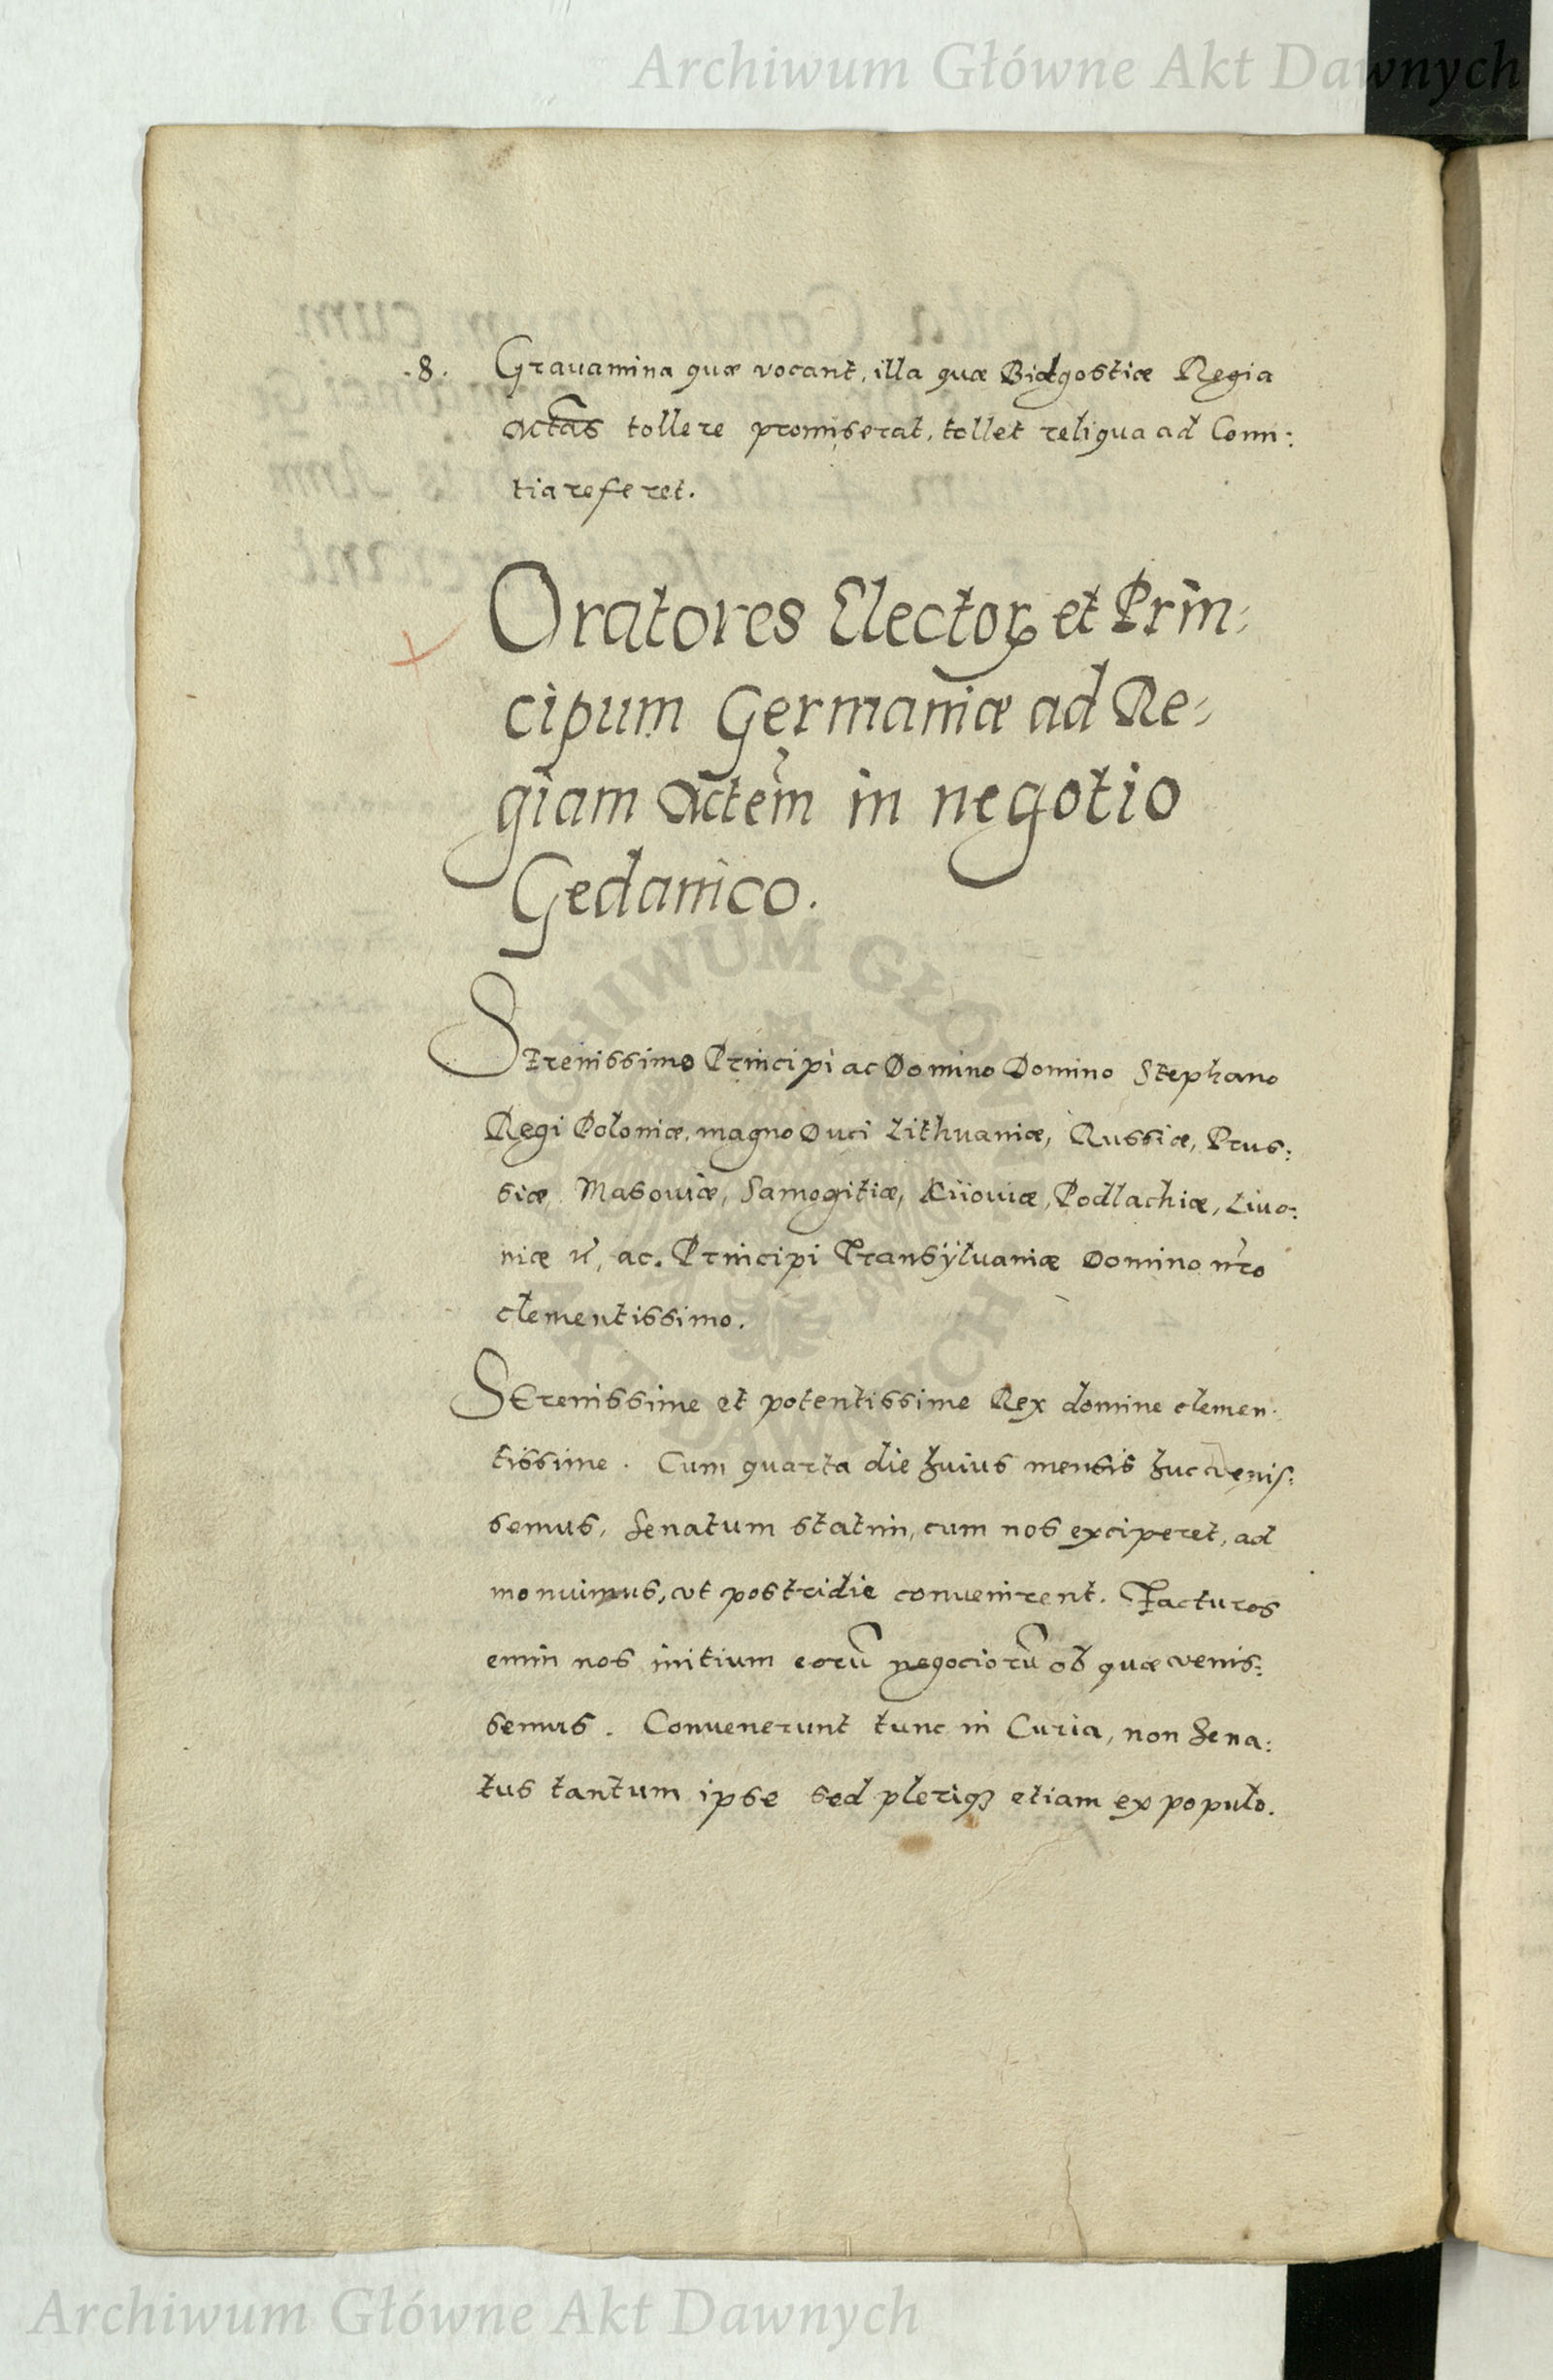 Archiwum Główne Akt Dawnych
.8. Grauamina quæ vocant, illa quæ Bidgostiæ Regia
Mctas tollere promiserat, tollet reliqua ad Comi:
tia referet.
Oratores Elector et Prin:
cipum Germaniæ ad Re:
giam Mctem in negotio
Gedanico.
Serenissimo Principi ac Domino Domino Stephano
Regi Poloniæ, magno Duci Lithuaniæ, Russiæ, Prus:
siæ, Masouiæ, Samogitiæ, Kiiouiæ, Podlachiæ, Liuo:
niæ ac. Principi Transÿluaniæ Domino nro
clementissimo.
SErenissime et potentissime Rex domine clemen.
tissime. Cum quarta die huius mensis huc venis:
semus, Senatum statim, cum nos exciperet, ad
monuimus, vt postridie conuenirent. Facturos
enim nos initium eorũ negociorũ ob quæ venis:
semus. Conuenerunt tunc in Curia, non Sena:
tus tantum ipse sed pleriq3 etiam ex populo.
ARCHIWUM GŁÓWNE
AKT DAWNYCH
Archiwum Główne Akt Dawnych